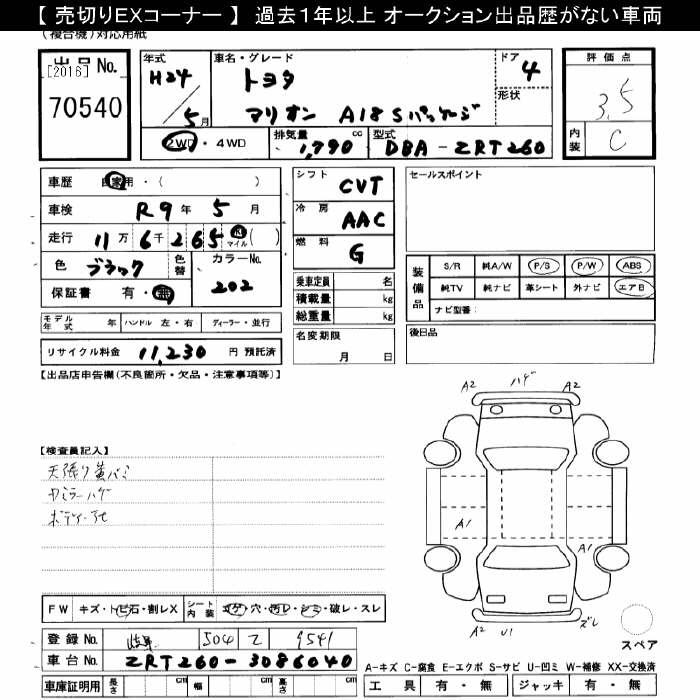 【 売切りEXコーナー 】 過去1年以上 オークション出品歴がない車両
(複合機)対応用紙
出品No.
[2016]
70540
年式
H24
5月
車名・グレード
トヨタ
マリオン A18 Sパッケージ
ドア
4
形状
評価点
3.5
内装
C
2WD・4WD
排気量
1,790
cc
型式
DBA-ZRT260
車歴 自家用・( )
車検 R9年5月
走行 11万6千265 km マイル ( )
色 ブラック
色替
カラーNo.
202
保証書 有・無
シフト
CVT
冷房
AAC
燃料
G
セールスポイント
装備品
S/R 純A/W P/S P/W ABS
純TV 純ナビ 革シート 外ナビ エアB
ナビ型番:
乗車定員 名
積載量 kg
総重量 kg
モデル年式 年 ハンドル 左・右 ディーラー・並行
名変期限
月 日
後日品
リサイクル料金 11,230 円 預託済
【出品店申告欄(不良箇所・欠品・注意事項等)】
A2 ハゲ A2
【検査員記入】
天張り黄バミ
ボディーアセ
A1
A1
A2 U1 ズレ
スペア
FW キズ・トビ石・割レX
シート内装 コゲ・穴・汚レ・シミ・破レ・スレ
登録No. 岐阜 504 Z 9541
車台No. ZRT260-3086040
車庫証明用 長さ cm 幅 cm 高さ cm
A-キズ C-腐食 E-エクボ S-サビ U-凹ミ W-補修 XX-交換済
工具 有・無 ジャッキ 有・無